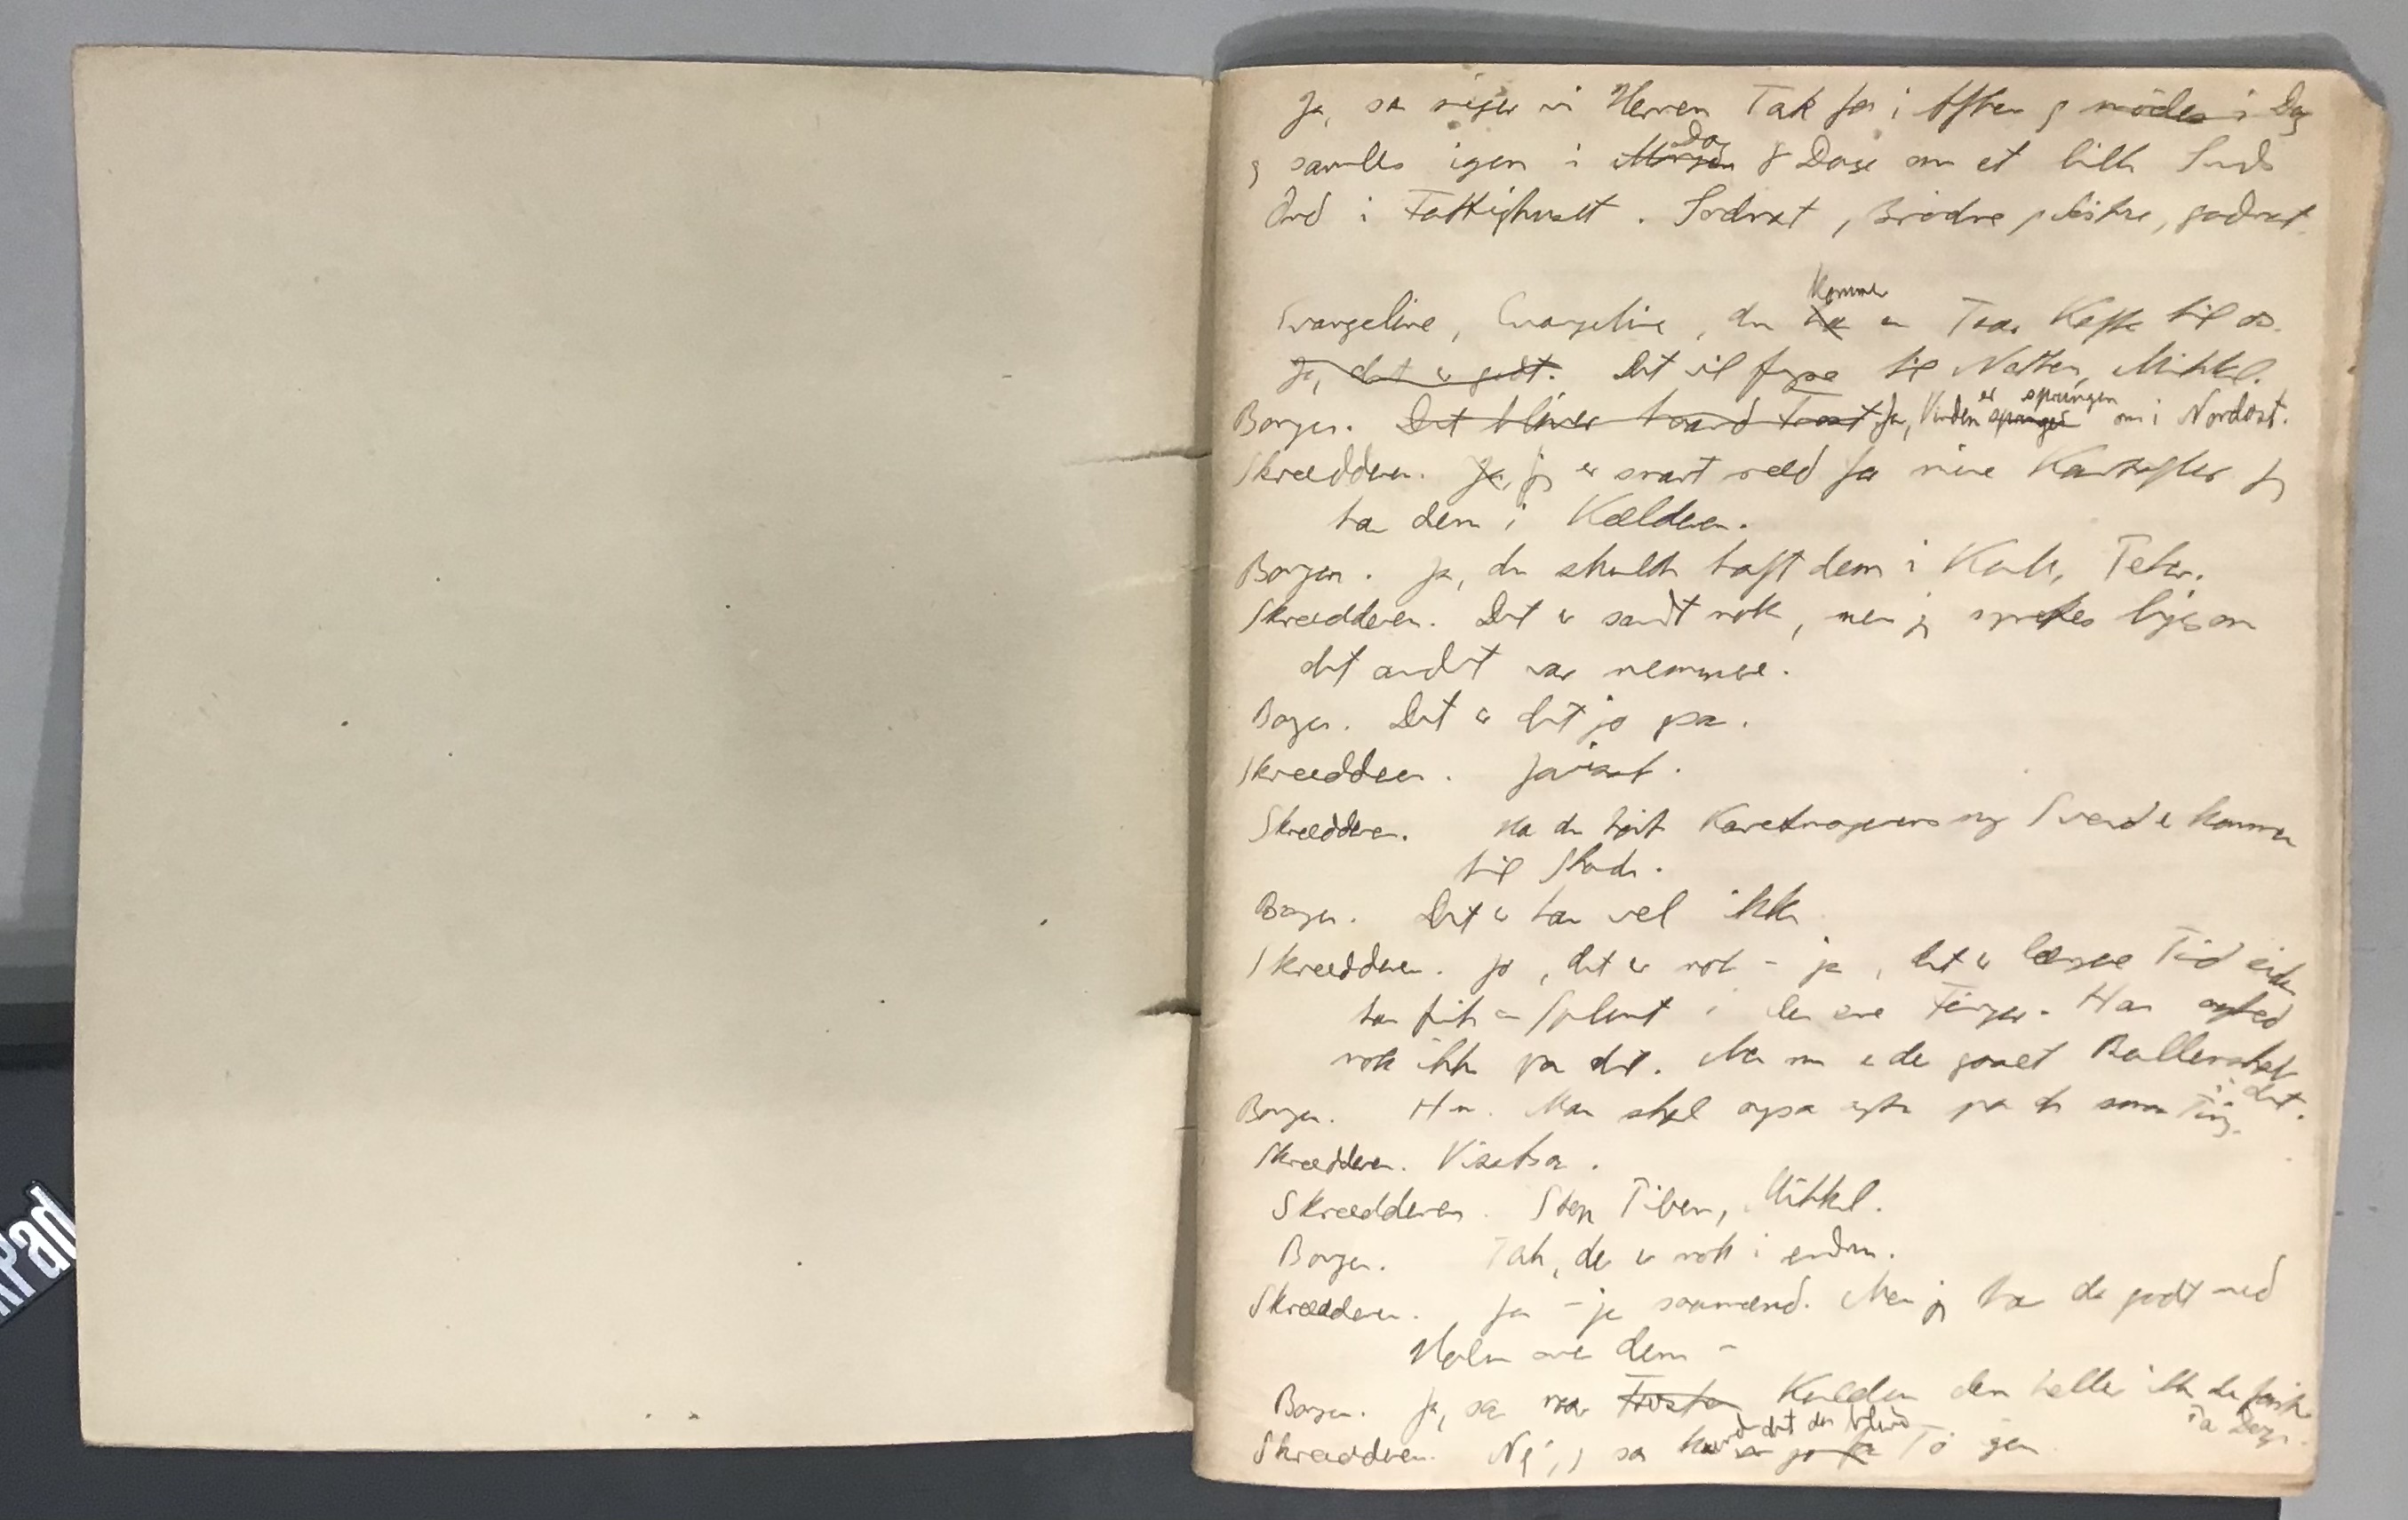 Ja, sa siger vi Herren Tak for i Aften og mödes i Dag
og samles igen i Morgen Dag 8 Dage om et lille Guds
Ord i Fattighuset. Godnat, Brödre og Söstre, godnat.
Evangeline, Evangeline, du ha kommer en Taar Kaffe til os.
Ja, det er godt. Det vil fryse til Natten, Mikkel.
Borgen. Det bliver haard Frost Ja, Vinden springer er sprungen om i Nordöst.
Skrædderen. Ja, jeg er snart ræd for mine Kartofler jeg
har dem i Kælderen.
Borgen. Ja, du skulde haft dem i Kule, Peter.
Skrædderen. Det er sandt nok, men jeg syntes ligesom
det andet var nemmere.
Borgen. Det er det jo osse.
Skrædderen. Javist.
Skrædderen. Har du hört Karetmagerens Svend er kommen
til Skade.
Borgen. Det er han vel ikke
Skrædderen. Jo, det er nok - ja, det er længere Tid siden
han fik en Splint i den ene Finger. Han agted
nok ikke paa det. Men nu er der gaaet Bullenskab
i det.
Borgen. Hm. Man skal ogsaa agte paa de smaa Ting.
Skrædderen. Visetsaa.
Skrædderen. Stop Piben, Mikkel.
Borgen. Tak, der er nok i endnu.
Skrædderen. Ja - ja saamænd. Men jeg har det godt med
Halm over dem -
Borgen. Ja, saa naar Frosten Kulden den heller ikke de förste
Dage.
Skrædderen. Nej, saa hvad det der blev Tö igen
kPad